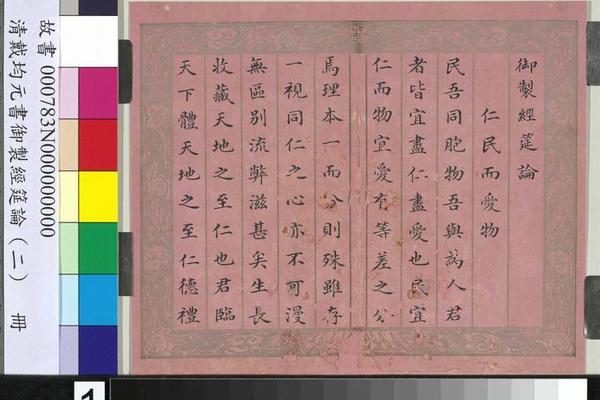 御製經筵論
仁民而愛物
民吾同胞物吾與為人君
者皆宜盡仁盡愛也民宜
仁而物宜愛有等差之分
焉理本一而分則殊雖存
一視同仁之心亦不可漫
無區別流弊滋甚矣生長
收藏天地之至仁也君臨
天下體天地之至仁德禮
故書 000783N000000000
清戴均元書御製經筵論(二) 冊
1